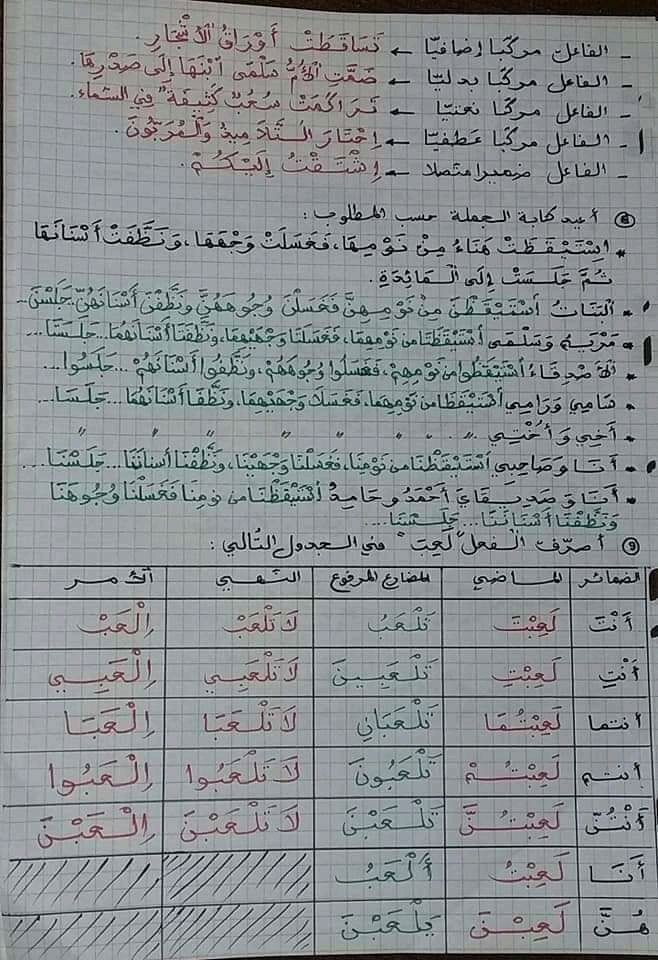 ـ الفاعل مركبا إضافيّا ← تَسَاقَطَتْ أَوْرَاقُ الْأَشْجَارِ.
ـ الفاعل مركبا بدليّا ← ضَمَّتِ الْأُمُّ سَلْمَى ابْنَهَا إِلَى صَدْرِهَا.
ـ الفاعل مركبا نعتيّا ← تَرَاكَمَتْ سُحُبٌ كَثِيفَةٌ فِي السَّمَاءِ.
ـ الفاعل مركبا عَطفيّا ← اِحْتَارَ التَّلَامِيذُ وَالْمُرَبُّونَ.
ـ الفاعل ضميرا متصلا ← اِشْتَقْتُ إِلَيْكُمْ.
⑧ أعيد كتابة الجملة حسب المطلوب:
• اِسْتَيْقَظَتْ هَنَاءُ مِنْ نَوْمِهَا، فَغَسَلَتْ وَجْهَهَا، وَنَظَّفَتْ أَسْنَانَهَا
ثُمَّ جَلَسَتْ إِلَى الْمَائِدَةِ.
• الْبَنَاتُ اسْتَيْقَظْنَ مِنْ نَوْمِهِنَّ فَغَسَلْنَ وُجُوهَهُنَّ وَنَظَّفْنَ أَسْنَانَهُنَّ جَلَسْنَ...
• مَرْيَمُ وَسَلْمَى اسْتَيْقَظَتَا مِن نَوْمِهِمَا، فَغَسَلَتَا وَجْهَيْهِمَا، وَنَظَّفَتَا أَسْنَانَهُمَا... جَلَسَتَا...
• الْأَصْدِقَاءُ اسْتَيْقَظُوا مِن نَوْمِهِمْ، فَغَسَلُوا وُجُوهَهُمْ، وَنَظَّفُوا أَسْنَانَهُمْ... جَلَسُوا...
• سَامِي وَرَامِي اسْتَيْقَظَا مِن نَوْمِهِمَا، فَغَسَلَا وَجْهَيْهِمَا، وَنَظَّفَا أَسْنَانَهُمَا... جَلَسَا...
• أَخِي وَأُخْتِي .. " " " " " "
• أَنَا وَصَاحِبِي اسْتَيْقَظْنَا مِن نَوْمِنَا، فَغَسَلْنَا وَجْهَيْنَا، وَنَظَّفْنَا أَسنَانَنَا... جَلَسْنَا...
• أَنَا وَصَدِيقَايَ أَحْمَدُ وحَامِدٌ اسْتَيْقَظْنَا مِن نومِنَا فَغَسَلْنَا وُجُوهَنَا
وَنَظَّفْنَا أَسْنَانَنَا... جَلَسْنَا...
⑨ أصرّف الْفعل "لَعِبَ" في الجدول التّالي:
الضمائر الماضي المضارع المرفوع النّهْي الأمر
أَنْتَ لَعِبْتَ تَلْعَبُ لَا تَلْعَبْ اِلْعَبْ
أَنْتِ لَعِبْتِ تَلْعَبِينَ لَا تَلْعَبِي اِلْعَبِي
أنتما لَعِبْتُمَا تَلْعَبَانِ لَا تَلْعَبَا اِلْعَبَا
أنتم لَعِبْتُمْ تَلْعَبُونَ لَا تَلْعَبُوا اِلْعَبُوا
أَنْتُنَّ لَعِبْتُنَّ تَلْعَبْنَ لَا تَلْعَبْنَ اِلْعَبْنَ
أَنَا لَعِبْتُ أَلْعَبُ
هُنَّ لَعِبْنَ يَلْعَبْنَ